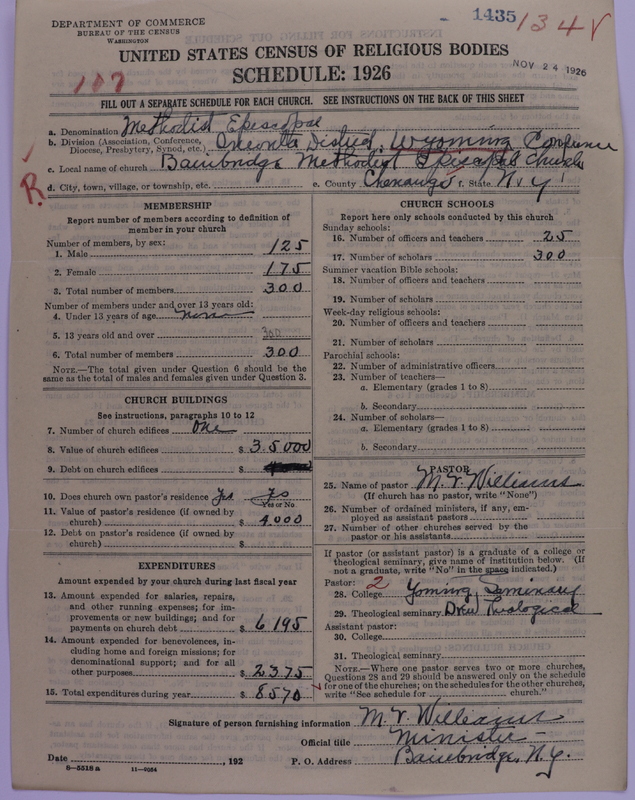 DEPARTMENT OF COMMERCE
BUREAU OF THE CENSUS
WASHINGTON
1435
134
UNITED STATES CENSUS OF RELIGIOUS BODIES
SCHEDULE: 1926
NOV 24 1926
107
FILL OUT A SEPARATE SCHEDULE FOR EACH CHURCH. SEE INSTRUCTIONS ON THE BACK OF THIS SHEET
a. Denomination Methodist Episcopal
b. Division (Association, Conference, Diocese, Presbytery, Synod, etc.) Oneonta District, Wyoming Conference
c. Local name of church Bainbridge Methodist Episcopal Church
d. City, town, village, or township, etc. e. County Chenango f. State N.Y.
R
MEMBERSHIP
Report number of members according to definition of
member in your church
Number of members, by sex:
1. Male 125
2. Female 175
3. Total number of members 300
Number of members under and over 13 years old:
4. Under 13 years of age none
5. 13 years old and over 300
6. Total number of members 300
NOTE.—The total given under Question 6 should be
same as the total of males and females given under Question 3.
CHURCH BUILDINGS
See instructions, paragraphs 10 to 12
7. Number of church edifices One
8. Value of church edifices $ 35000
9. Debt on church edifices $
10. Does church own pastor's residence Yes Yes
Yes or No
11. Value of pastor's residence (if owned by
church) $ 4000
12. Debt on pastor's residence (if owned by
church) $
EXPENDITURES
Amount expended by your church during last fiscal year
13. Amount expended for salaries, repairs,
and other running expenses; for im-
provements or new buildings; and for
payments on church debt $ 6195
14. Amount expended for benevolences, in-
cluding home and foreign missions; for
denominational support; and for all
other purposes $ 2375
15. Total expenditures during year $ 8570
CHURCH SCHOOLS
Report here only schools conducted by this church
Sunday schools:
16. Number of officers and teachers 25
17. Number of scholars 300
Summer vacation Bible schools:
18. Number of officers and teachers
19. Number of scholars
Week-day religious schools:
20. Number of officers and teachers
21. Number of scholars
Parochial schools:
22. Number of administrative officers
23. Number of teachers—
a. Elementary (grades 1 to 8)
b. Secondary
24. Number of scholars—
a. Elementary (grades 1 to 8)
b. Secondary
PASTOR
25. Name of pastor M. V. Williams
(If church has no pastor, write "None")
26. Number of ordained ministers, if any, em-
ployed as assistant pastors
27. Number of other churches served by the
pastor or his assistants
If pastor (or assistant pastor) is a graduate of a college or
theological seminary, give name of institution below. (If
not a graduate, write "No" in the space indicated.)
Pastor: 2
28. College Yoming Seminary
29. Theological seminary Drew Theological
Assistant pastor:
30. College
31. Theological seminary
NOTE.—Where one pastor serves two or more churches,
Questions 28 and 29 should be answered only on the schedule
for one of the churches; on the schedules for the other churches,
write "See schedule for church."
Signature of person furnishing information M. V. Williams
Official title Minister
Date , 192 P. O. Address Bainbridge, N.Y.
8—5518 a 11—9064